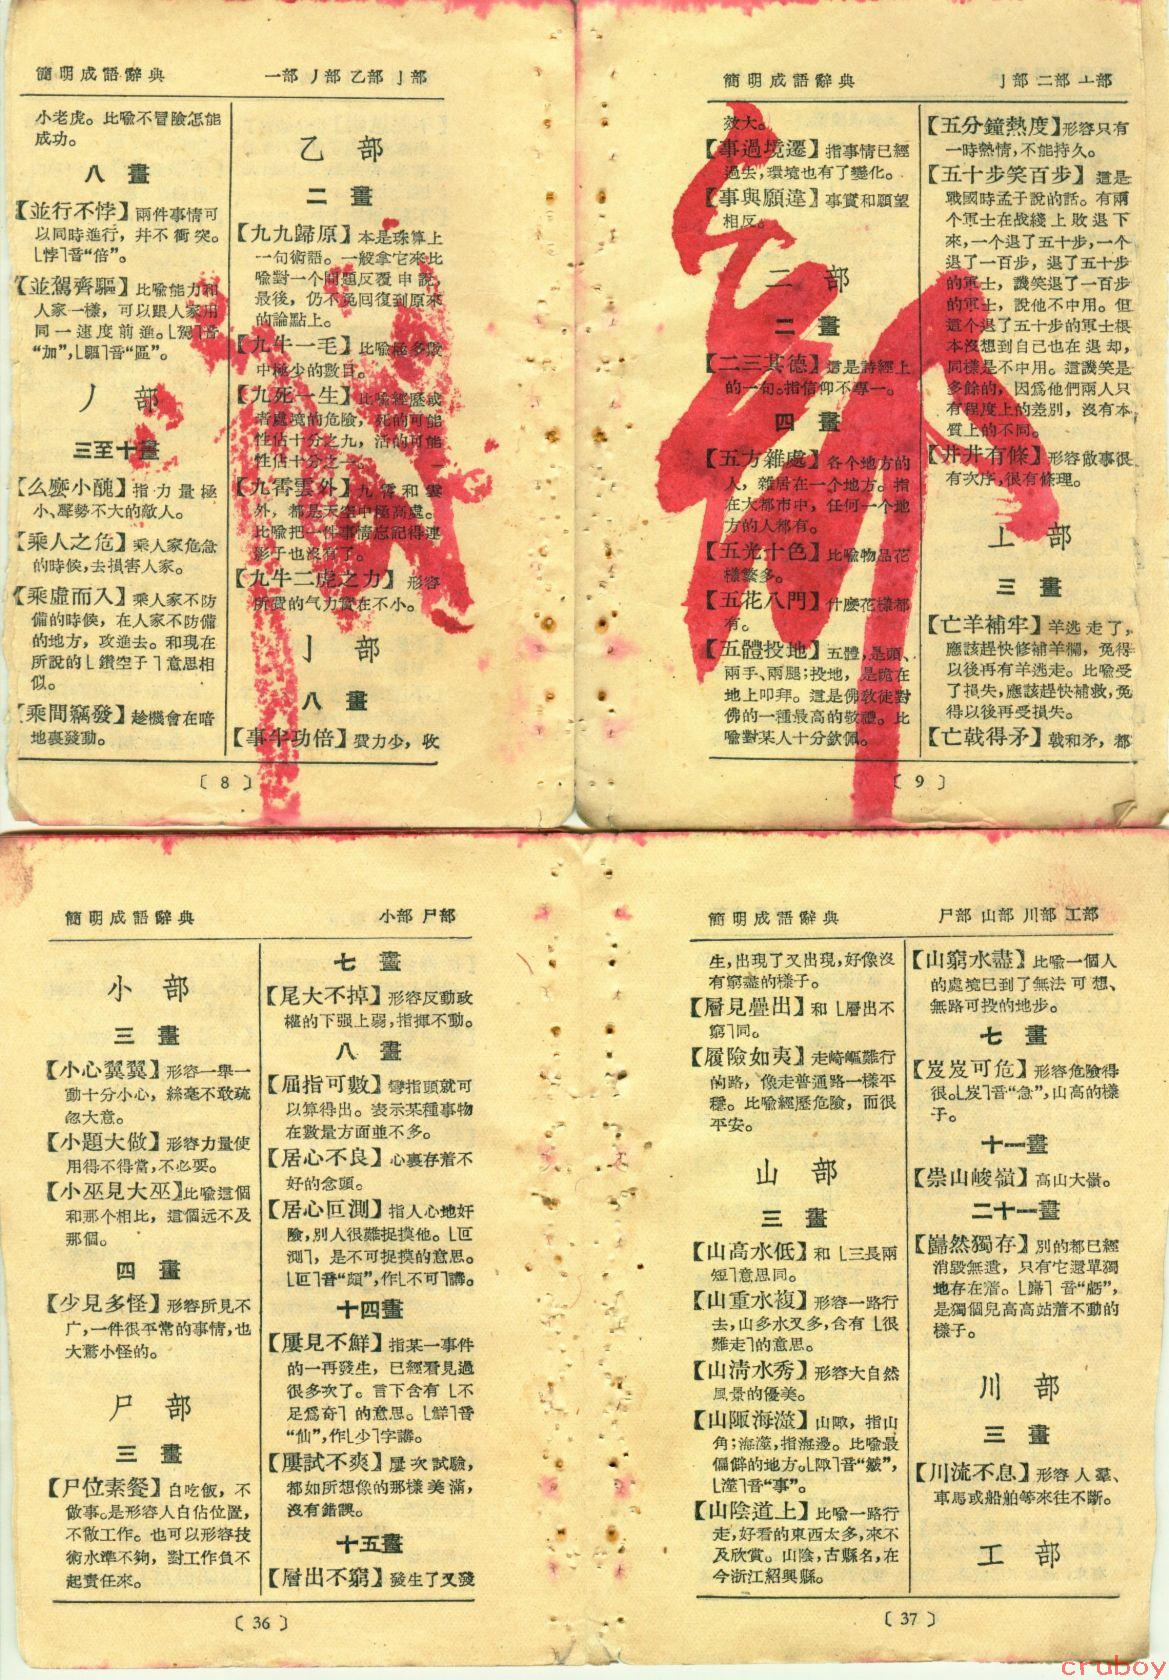 簡明成語辭典
一部丿部乙部亅部
小老虎。比喩不冒險怎能
成功。
八畫
【並行不悖】兩件事情可
以同時進行，幷不衝突。
⌊悖⌉音“倍”。
【並駕齊驅】比喩能力和
人家一樣，可以跟人家用
同一速度前進。⌊駕⌉音
“加”，⌊驅⌉音“區”。
丿部
三至十畫
【么麼小醜】指力量極
小、聲勢不大的敵人。
【乘人之危】乘人家危急
的時候，去損害人家。
【乘虛而入】乘人家不防
備的時候，在人家不防備
的地方，攻進去。和現在
所說的⌊鑽空子⌉意思相
似。
【乘間竊發】趁機會在暗
地裏發動。
乙部
二畫
【九九歸原】本是珠算上
一句術語。一般拿它來比
喩對一个問題反覆申說，
最後，仍不免回復到原來
的論點上。
【九牛一毛】比喩極多數
中極少的數目。
【九死一生】比喩經歷或
者處境的危險，死的可能
性佔十分之九，活的可能
性佔十分之一。
【九霄雲外】九霄和雲
外，都是天空中極高處。
比喩把一件事情忘記得連
影子也沒有了。
【九牛二虎之力】形容
所費的气力實在不小。
亅部
八畫
【事半功倍】費力少，收
〔8〕
簡明成語辭典
亅部二部亠部
效大。
【事過境遷】指事情已經
過去，環境也有了變化。
【事與願違】事實和願望
相反。
二部
二畫
【二三其德】這是詩經上
的一句。指信仰不專一。
四畫
【五方雜處】各个地方的
人，雜居在一个地方。指
在大都市中，任何一个地
方的人都有。
【五光十色】比喩物品花
樣繁多。
【五花八門】什麼花樣都
有。
【五體投地】五體，是頭、
兩手、兩腿；投地，是跪在
地上叩拜。這是佛敎徒對
佛的一種最高的敬禮。比
喩對某人十分欽佩。
【五分鐘熱度】形容只有
一時熱情，不能持久。
【五十步笑百步】這是
戰國時孟子說的話。有兩
个軍士在战綫上敗退下
來，一个退了五十步，一个
退了一百步，退了五十步
的軍士，譏笑退了一百步
的軍士，說他不中用。但
這个退了五十步的軍士根
本沒想到自己也在退却，
同樣是不中用。這譏笑是
多餘的，因爲他們兩人只
有程度上的差別，沒有本
質上的不同。
【井井有條】形容做事很
有次序，很有條理。
亠部
三畫
【亡羊補牢】羊逃走了，
應該趕快修補羊欄，免得
以後再有羊逃走。比喩受
了損失，應該趕快補救，免
得以後再受損失。
【亡戟得矛】戟和矛，都
〔9〕
簡明成語辭典
小部尸部
小部
三畫
【小心翼翼】形容一舉一
動十分小心，絲毫不敢疏
忽大意。
【小題大做】形容力量使
用得不得當，不必要。
【小巫見大巫】比喩這個
和那个相比，這個远不及
那個。
四畫
【少見多怪】形容所見不
广，一件很平常的事情，也
大驚小怪的。
尸部
三畫
【尸位素餐】白吃飯，不
做事。是形容人白佔位置，
不做工作。也可以形容技
術水準不夠，對工作負不
起責任來。
七畫
【尾大不掉】形容反動政
權的下强上弱，指揮不動。
八畫
【屈指可數】彎指頭就可
以算得出。表示某種事物
在數量方面並不多。
【居心不良】心裏存着不
好的念頭。
【居心叵測】指人心地奸
險，別人很難捉摸他。⌊叵
測⌉，是不可捉摸的意思。
⌊叵⌉音“頗”，作⌊不可⌉講。
十四畫
【屢見不鮮】指某一事件
的一再發生，已經看見過
很多次了。言下含有⌊不
足爲奇⌉的意思。⌊鮮⌉音
“仙”，作⌊少⌉字講。
【屢試不爽】屢次試驗，
都如所想像的那樣美滿，
沒有錯誤。
十五畫
【層出不窮】發生了又發
〔36〕
簡明成語辭典
尸部山部川部工部
生，出現了又出現，好像沒
有窮盡的樣子。
【層見疊出】和⌊層出不
窮⌉同。
【履險如夷】走崎嶇難行
的路，像走普通路一樣平
穩。比喩經歷危險，而很
平安。
山部
三畫
【山高水低】和⌊三長兩
短⌉意思同。
【山重水複】形容一路行
去，山多水又多，含有⌊很
難走⌉的意思。
【山淸水秀】形容大自然
風景的優美。
【山陬海澨】山陬，指山
角；海澨，指海邊。比喩最
偏僻的地方。⌊陬⌉音“皺”，
⌊澨⌉音“事”。
【山陰道上】比喩一路行
走，好看的東西太多，來不
及欣賞。山陰，古縣名，在
今浙江紹興縣。
【山窮水盡】比喩一個人
的處境已到了無法可想、
無路可投的地步。
七畫
【岌岌可危】形容危險得
很。⌊岌⌉音“急”，山高的樣
子。
十一畫
【崇山峻嶺】高山大嶺。
二十一畫
【巋然獨存】別的都已經
消毀無遺，只有它還單獨
地存在着。⌊巋⌉音“虧”，
是獨個兒高高站着不動的
樣子。
川部
三畫
【川流不息】形容人羣、
車馬或船舶等來往不斷。
工部
〔37〕
cruboy